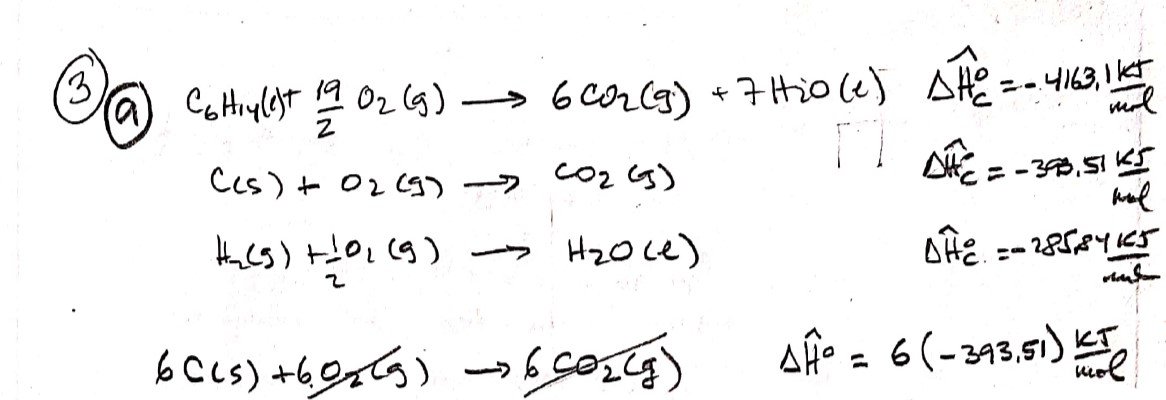 ③ ⓐ C6H14(l) + 19/2 O2(g) → 6CO2(g) + 7H2O(l) ΔĤ°c = -4163,1 kJ/mol
C(s) + O2(g) → CO2(g) ΔĤ°c = -393,51 kJ/mol
H2(g) + 1/2 O2(g) → H2O(l) ΔĤ°c = -285,84 kJ/mol
6C(s) + 6O2(g) → 6CO2(g) ΔĤ° = 6(-393,51) kJ/mol